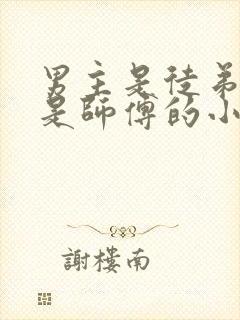 男主是徒弟
是師傅的小
謝樓南